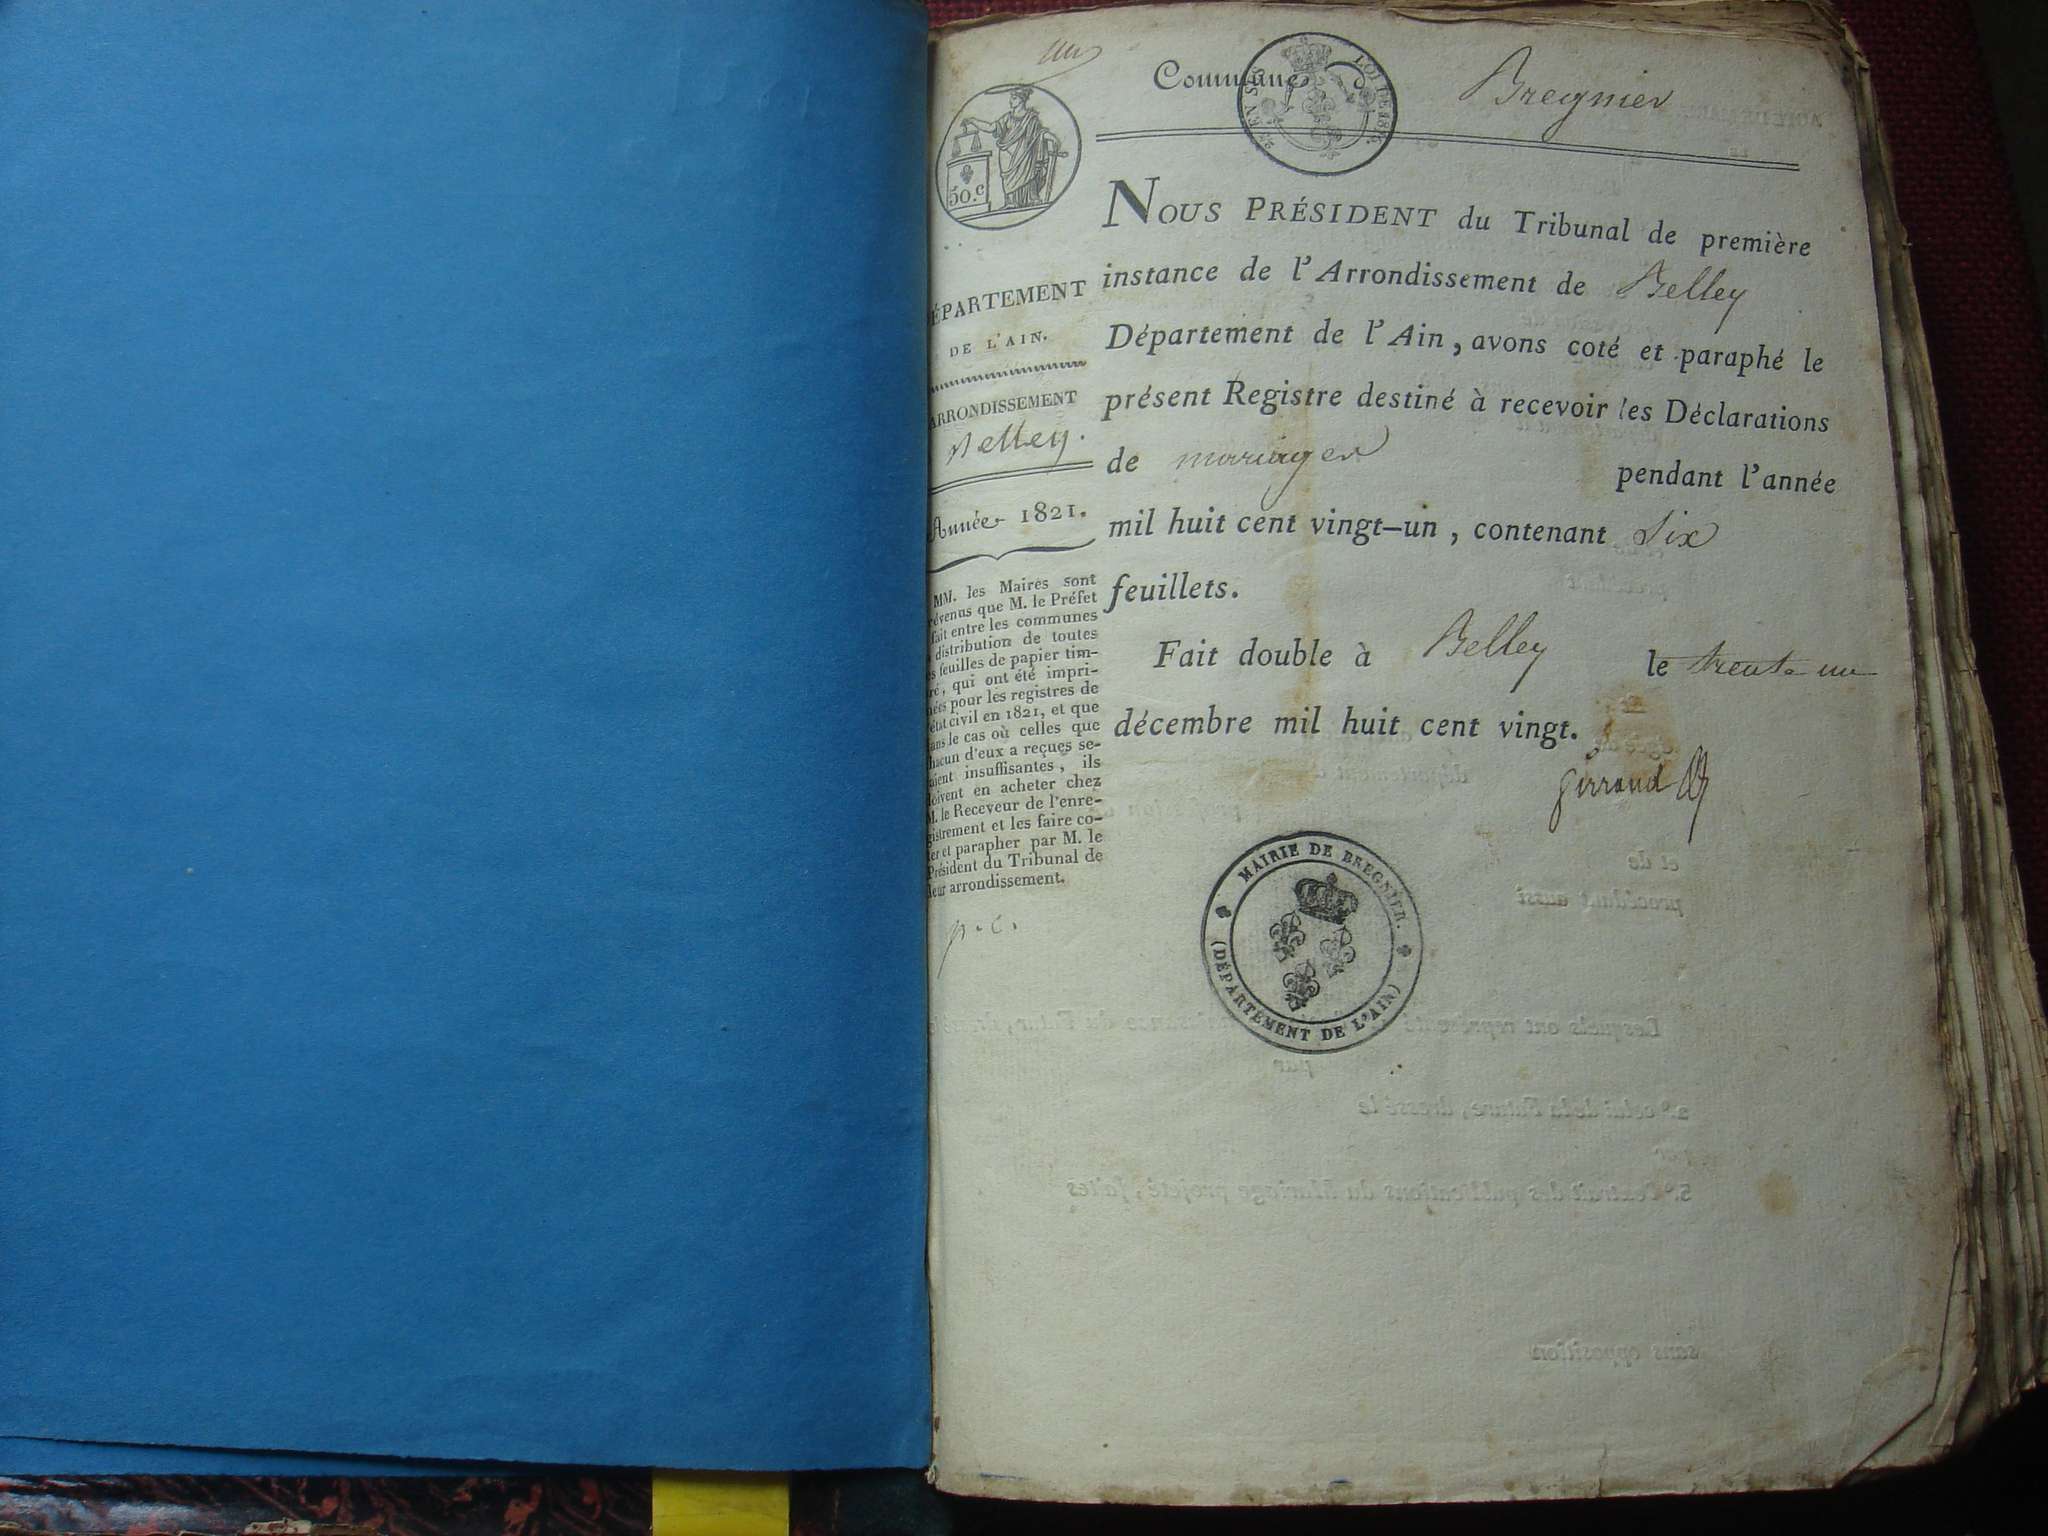 un
Commune
Bregnier
LOI DE 1816.
50.c
NOUS PRÉSIDENT du Tribunal de première
instance de l'Arrondissement de Belley
Département de l'Ain, avons coté et paraphé le
présent Registre destiné à recevoir les Déclarations
de mariages pendant l'année
mil huit cent vingt-un, contenant Six
feuillets.
Fait double à Belley le trente un
décembre mil huit cent vingt.
Girraud
ÉPARTEMENT
DE L'AIN.
ARRONDISSEMENT
Belley.
Année 1821.
MM. les Maires sont
révenus que M. le Préfet
fait entre les communes
distribution de toutes
s feuilles de papier tim-
ré, qui ont été impri-
ées pour les registres de
état civil en 1821, et que
ans le cas où celles que
hacun d'eux a reçues se-
aient insuffisantes, ils
doivent en acheter chez
M. le Receveur de l'enre-
gistrement et les faire co-
ter et parapher par M. le
Président du Tribunal de
leur arrondissement.
p.c.
MAIRIE DE BREGNIER.
(DÉPARTEMENT DE L'AIN)